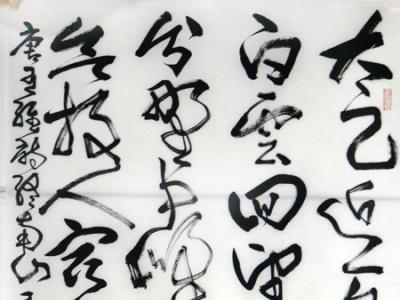 太乙近
白雲回望
分野中
欲投人
唐王維詩終南山